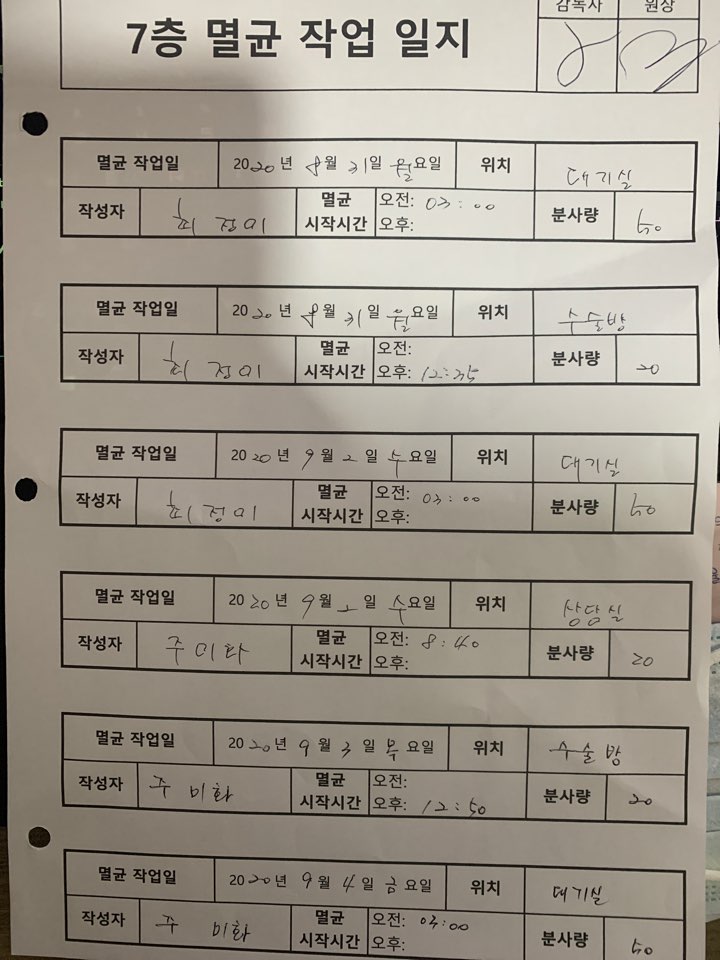 감독사 원장
7층 멸균 작업 일지
멸균 작업일 2020년 8월 31일 월요일 위치 대기실
작성자 최정미 멸균 시작시간 오전: 03:00 오후: 분사량 50
멸균 작업일 2020년 8월 31일 월요일 위치 수술방
작성자 최정미 멸균 시작시간 오전: 오후: 12:35 분사량 20
멸균 작업일 2020년 9월 2일 수요일 위치 대기실
작성자 최정미 멸균 시작시간 오전: 03:00 오후: 분사량 50
멸균 작업일 2020년 9월 2일 수요일 위치 상담실
작성자 주미화 멸균 시작시간 오전: 8:40 오후: 분사량 20
멸균 작업일 2020년 9월 3일 목요일 위치 수술방
작성자 주미화 멸균 시작시간 오전: 오후: 12:50 분사량 20
멸균 작업일 2020년 9월 4일 금요일 위치 대기실
작성자 주미화 멸균 시작시간 오전: 03:00 오후: 분사량 50